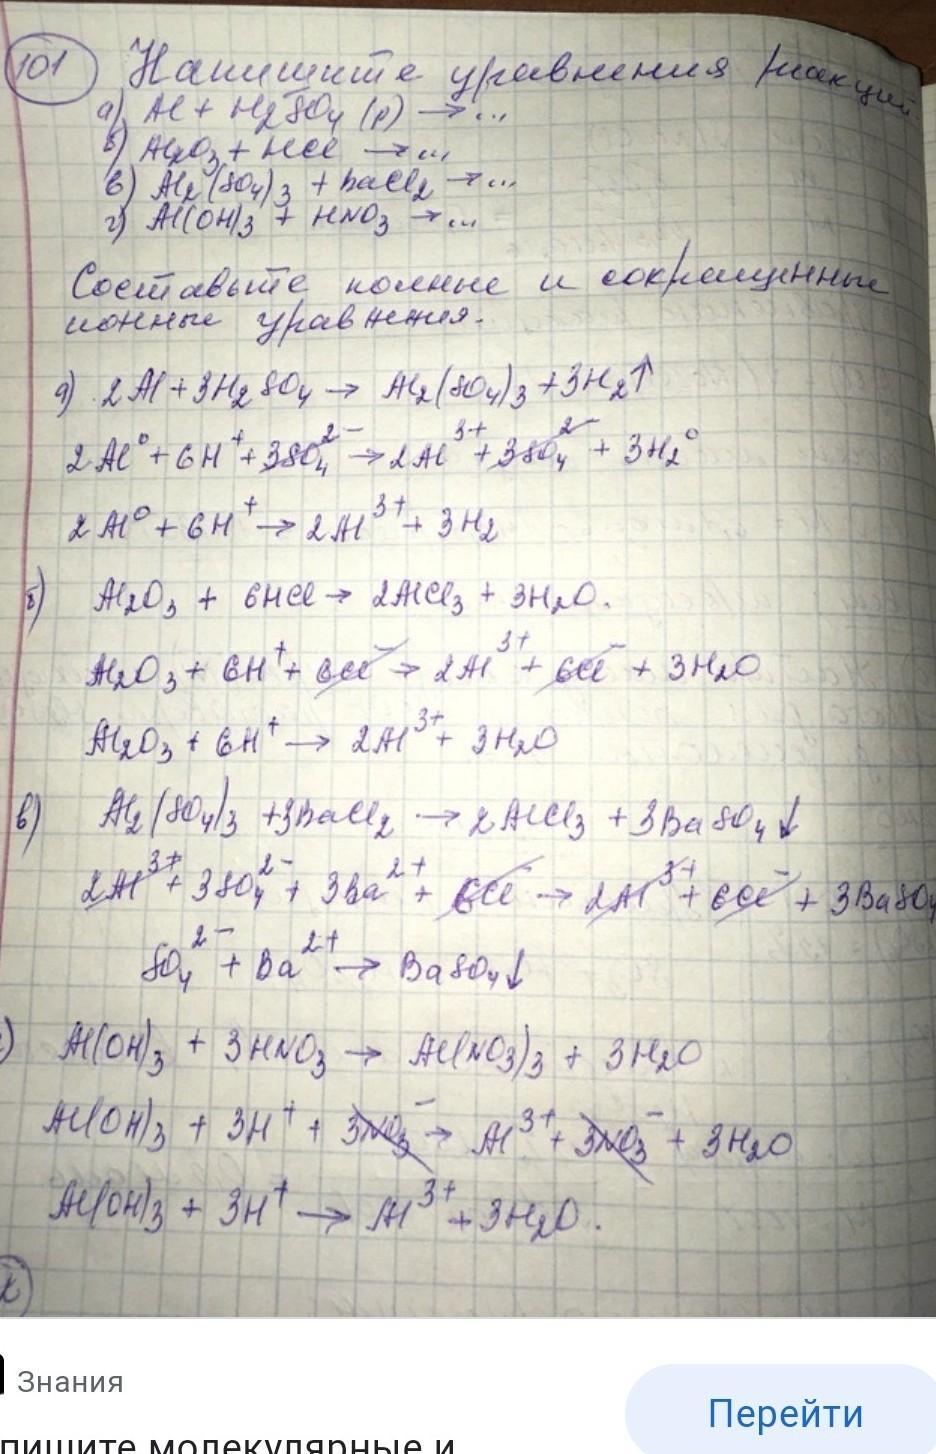 101 Напишите уравнения реакций
а) Al + H₂SO₄ (р) → ...
б) Al₂O₃ + HCl → ...
в) Al₂(SO₄)₃ + BaCl₂ → ...
г) Al(OH)₃ + HNO₃ → ...
Составьте полные и сокращенные
ионные уравнения.
а) 2Al + 3H₂SO₄ → Al₂(SO₄)₃ + 3H₂↑
2Al⁰ + 6H⁺ + 3SO₄²⁻ → 2Al³⁺ + 3SO₄²⁻ + 3H₂⁰
2Al⁰ + 6H⁺ → 2Al³⁺ + 3H₂
б) Al₂O₃ + 6HCl → 2AlCl₃ + 3H₂O.
Al₂O₃ + 6H⁺ + 6Cl⁻ → 2Al³⁺ + 6Cl⁻ + 3H₂O
Al₂O₃ + 6H⁺ → 2Al³⁺ + 3H₂O
в) Al₂(SO₄)₃ + 3BaCl₂ → 2AlCl₃ + 3BaSO₄↓
2Al³⁺ + 3SO₄²⁻ + 3Ba²⁺ + 6Cl⁻ → 2Al³⁺ + 6Cl⁻ + 3BaSO₄
SO₄²⁻ + Ba²⁺ → BaSO₄↓
) Al(OH)₃ + 3HNO₃ → Al(NO₃)₃ + 3H₂O
Al(OH)₃ + 3H⁺ + 3NO₃⁻ → Al³⁺ + 3NO₃⁻ + 3H₂O
Al(OH)₃ + 3H⁺ → Al³⁺ + 3H₂O.
Знания
Перейти
пишите молекулярные и